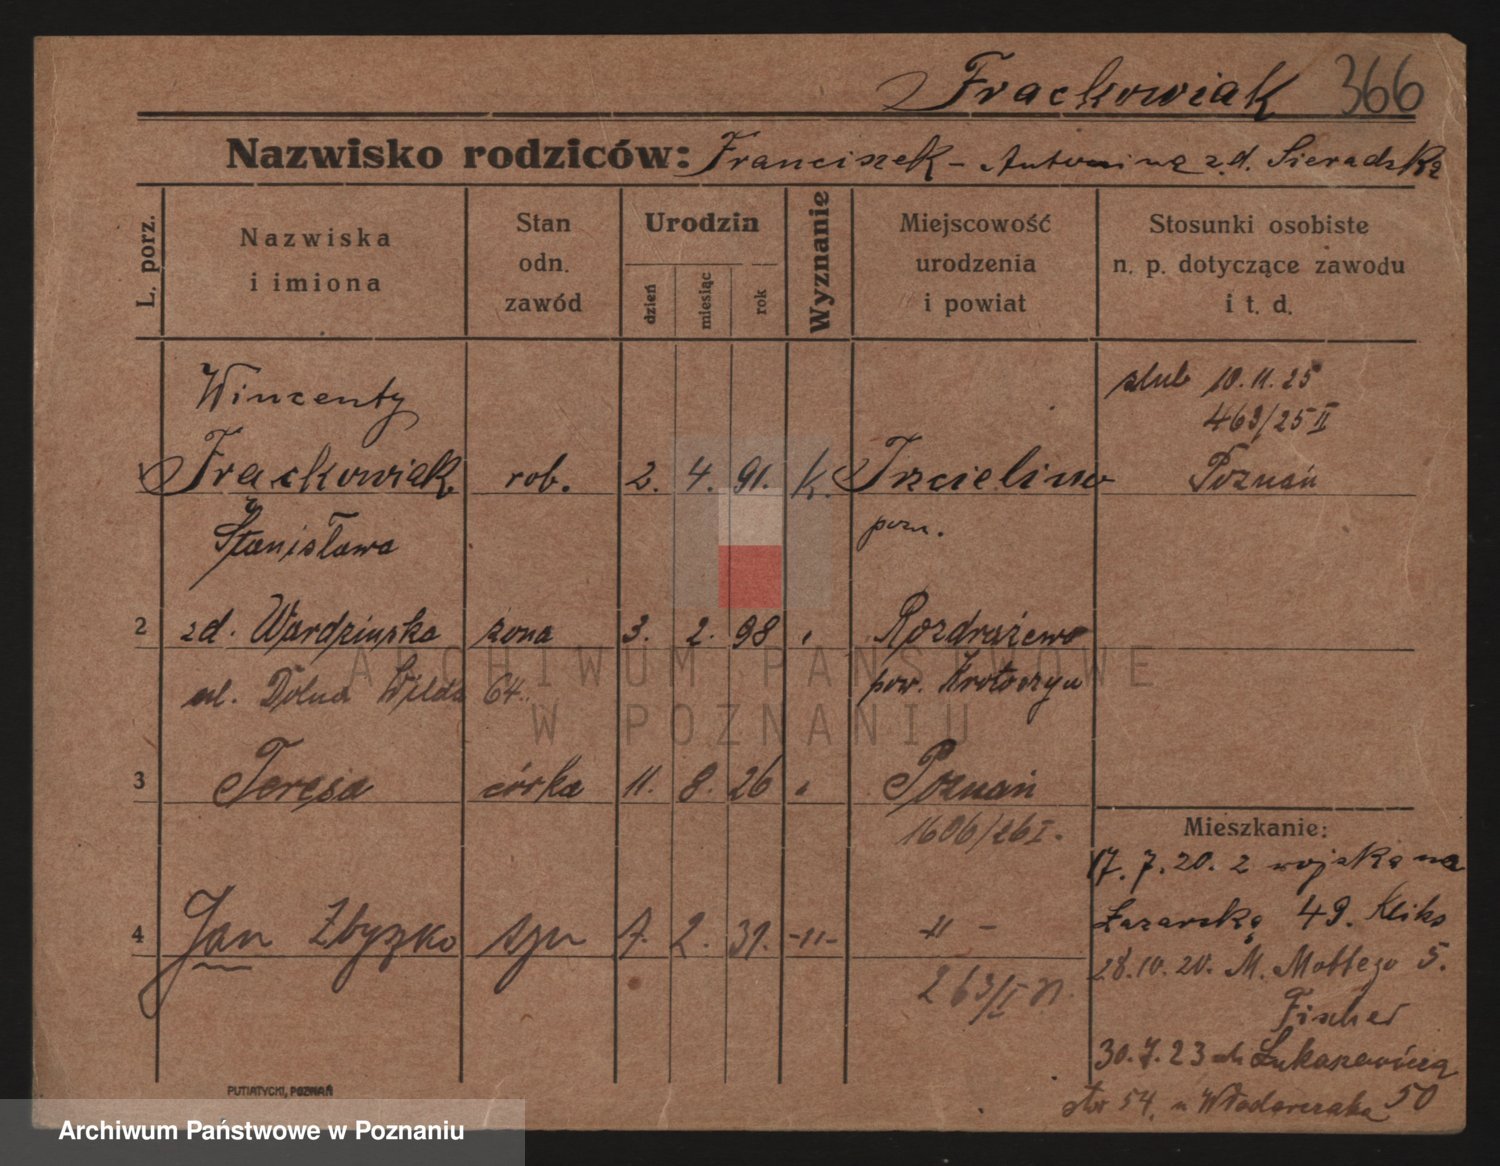 Frackowiak 366
Nazwisko rodziców: Franciszek - Antonina z.d. Sieradzka
L. porz.
Nazwiska i imiona
Stan odn. zawód
Urodzin
dzień
miesiąc
rok
Wyznanie
Miejscowość urodzenia i powiat
Stosunki osobiste n. p. dotyczące zawodu i t. d.
Wincenty
1 Frackowiak rob. 2. 4. 91. K. Trzcielino
pozn.
ślub 10.11.25
463/25 II
Poznań
Stanisława
2 zd. Wardzińska żona 3. 2. 98 Rozdrażewo
pow. Krotoszyn
ul. Dolna Wilda 64.
3 Teresa córka 11. 8. 26 Poznań
1606/26 I.
4 Jan Zbyszko syn 2. 31. -11- -11-
263/I
Mieszkanie:
17.7.20. z wojska na
Łazarską 49.
28.10.20. M. Mottego 5.
Fischer
30.7.23 Łukaszewicza
54. u Włodarczaka 50
PUTIATYCKI, POZNAŃ
ARCHIWUM PAŃSTWOWE
W POZNANIU
Archiwum Państwowe w Poznaniu